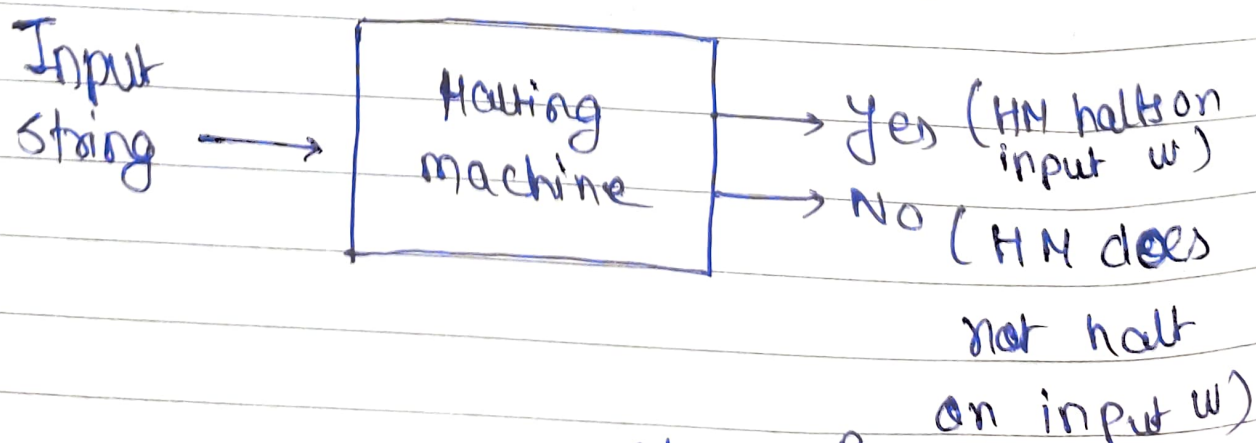 Input
String
Halting
machine
Yes (HM halts on
input w)
NO (HM does
not halt
on input w)